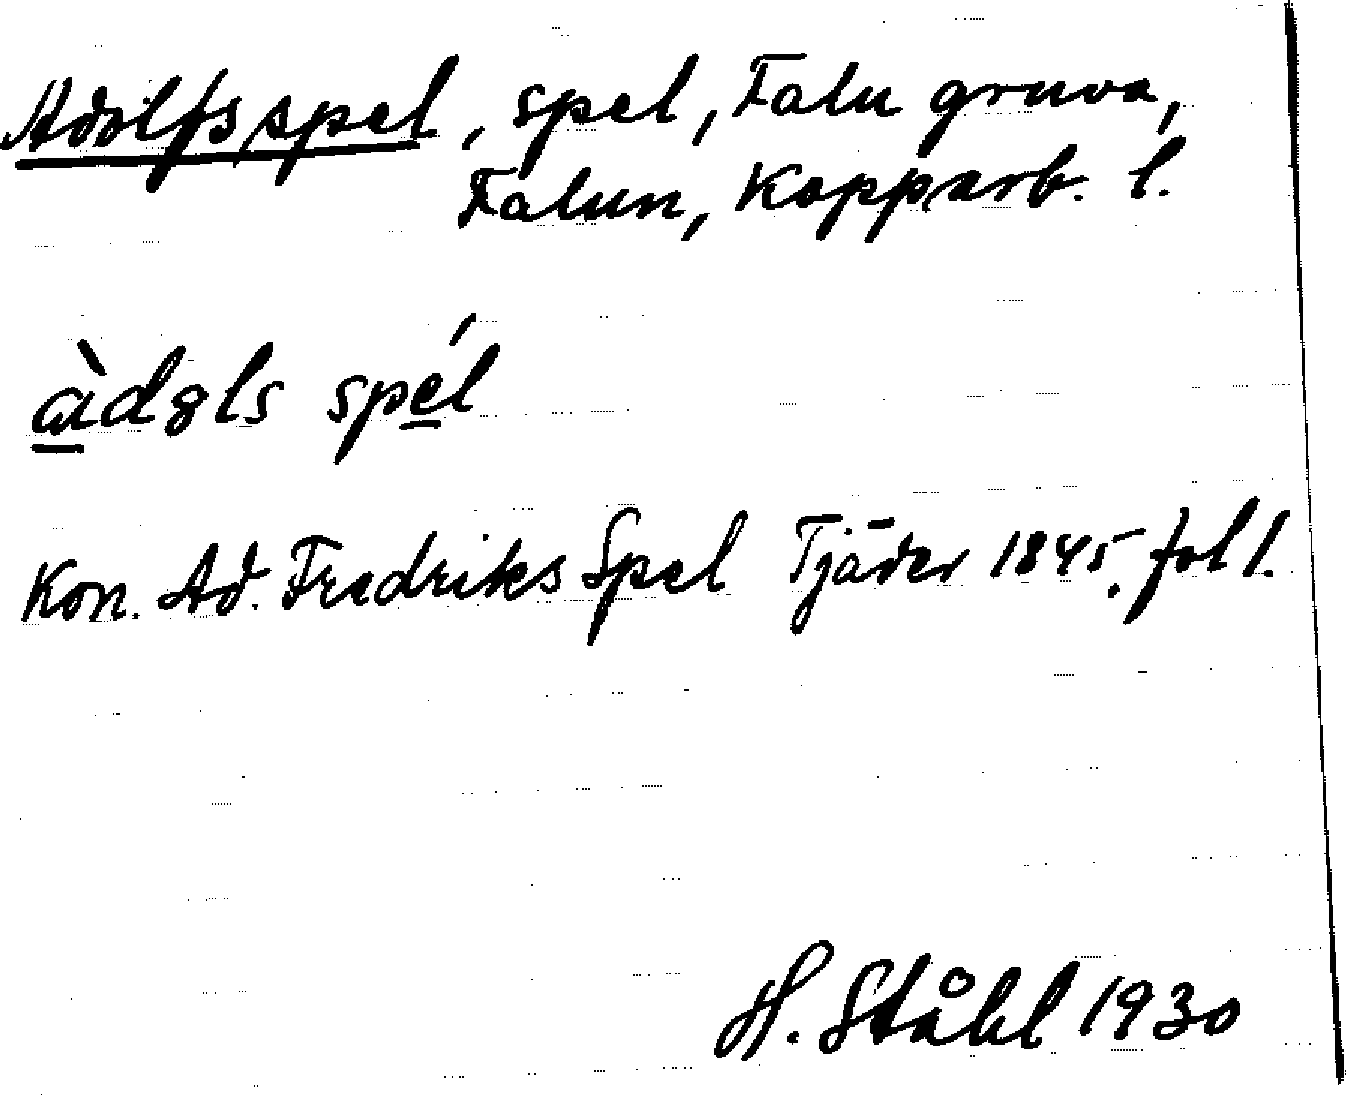 Adolfsspel, spel, Falu gruva,
Falun, Kopparb. l.
àdₒls spél
Kon. Ad. Fredriks Spel Tjäder 1845. fol 1.
H. Ståhl 1930